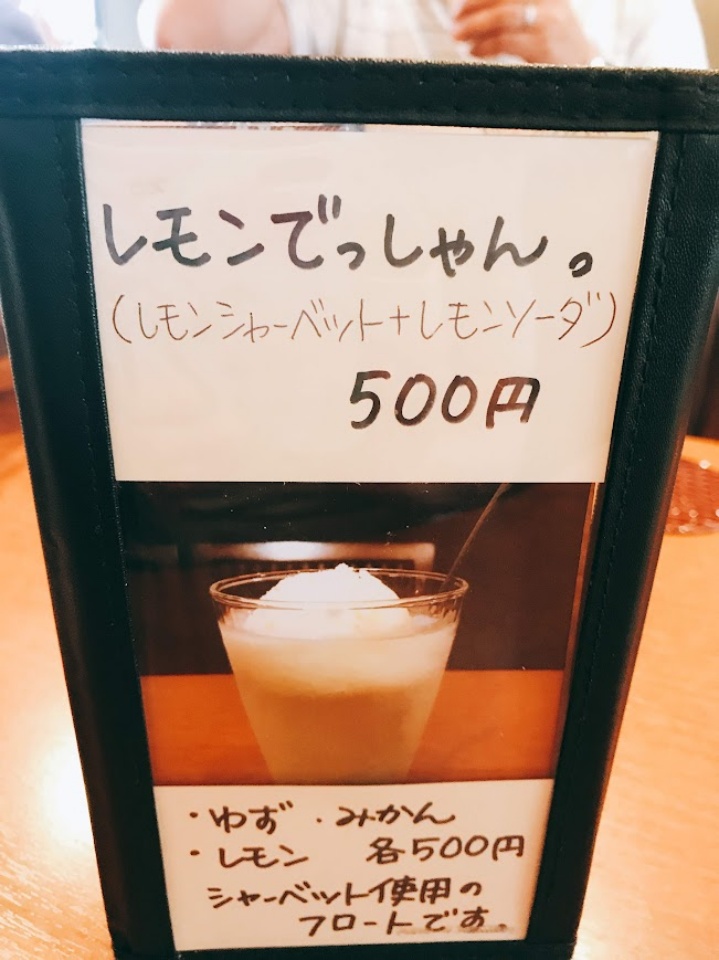 レモンでっしゃん。
(レモンシャーベット+レモンソーダ)
500円
・ゆず ・みかん
・レモン 各500円
シャーベット使用の
フロートです。